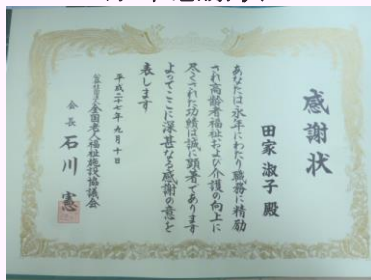 感謝状
田家 淑子 殿
あなたは永年にわたり職務に精励
され高齢者福祉および介護の向上に
尽くされた功績は誠に顕著であります
よってここに深甚なる感謝の意を
表します
平成二十七年九月十日
全国老人福祉施設協議会
会長 石川 憲